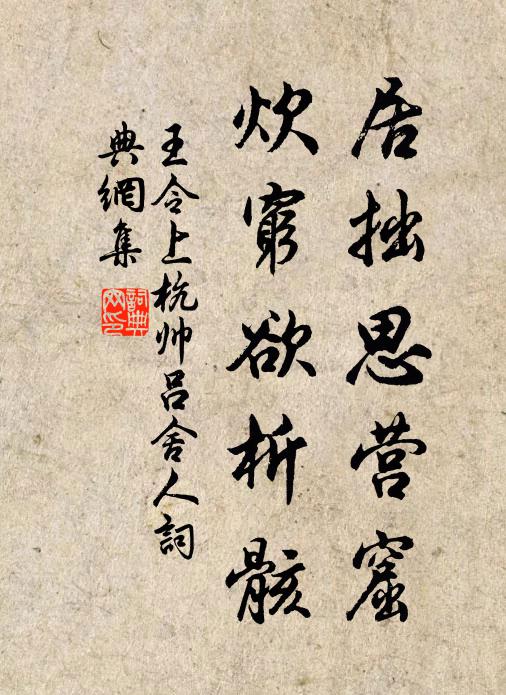 居拙思营窟
炊穷欲析骸
王令上杭帅吕舍人词
典網集
詞典
网印